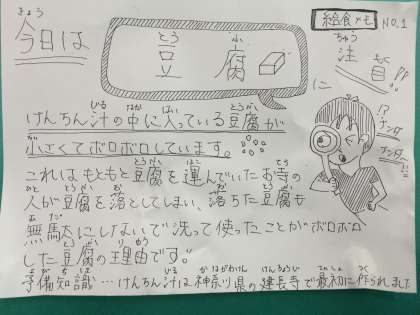 給食メモ NO.1
今日は
豆腐
に
注目!!
!?
ナンダ
ナンダ〜!?
けんちん汁の中に入っている豆腐が
小さくてボロボロしています。
これはもともと豆腐を運んでいたお寺の
人が豆腐を落としてしまい、落ちた豆腐も
無駄にしないで洗って使ったことがボロボロ
した豆腐の理由です。
予備知識…けんちん汁は神奈川県の建長寺で最初に作られました